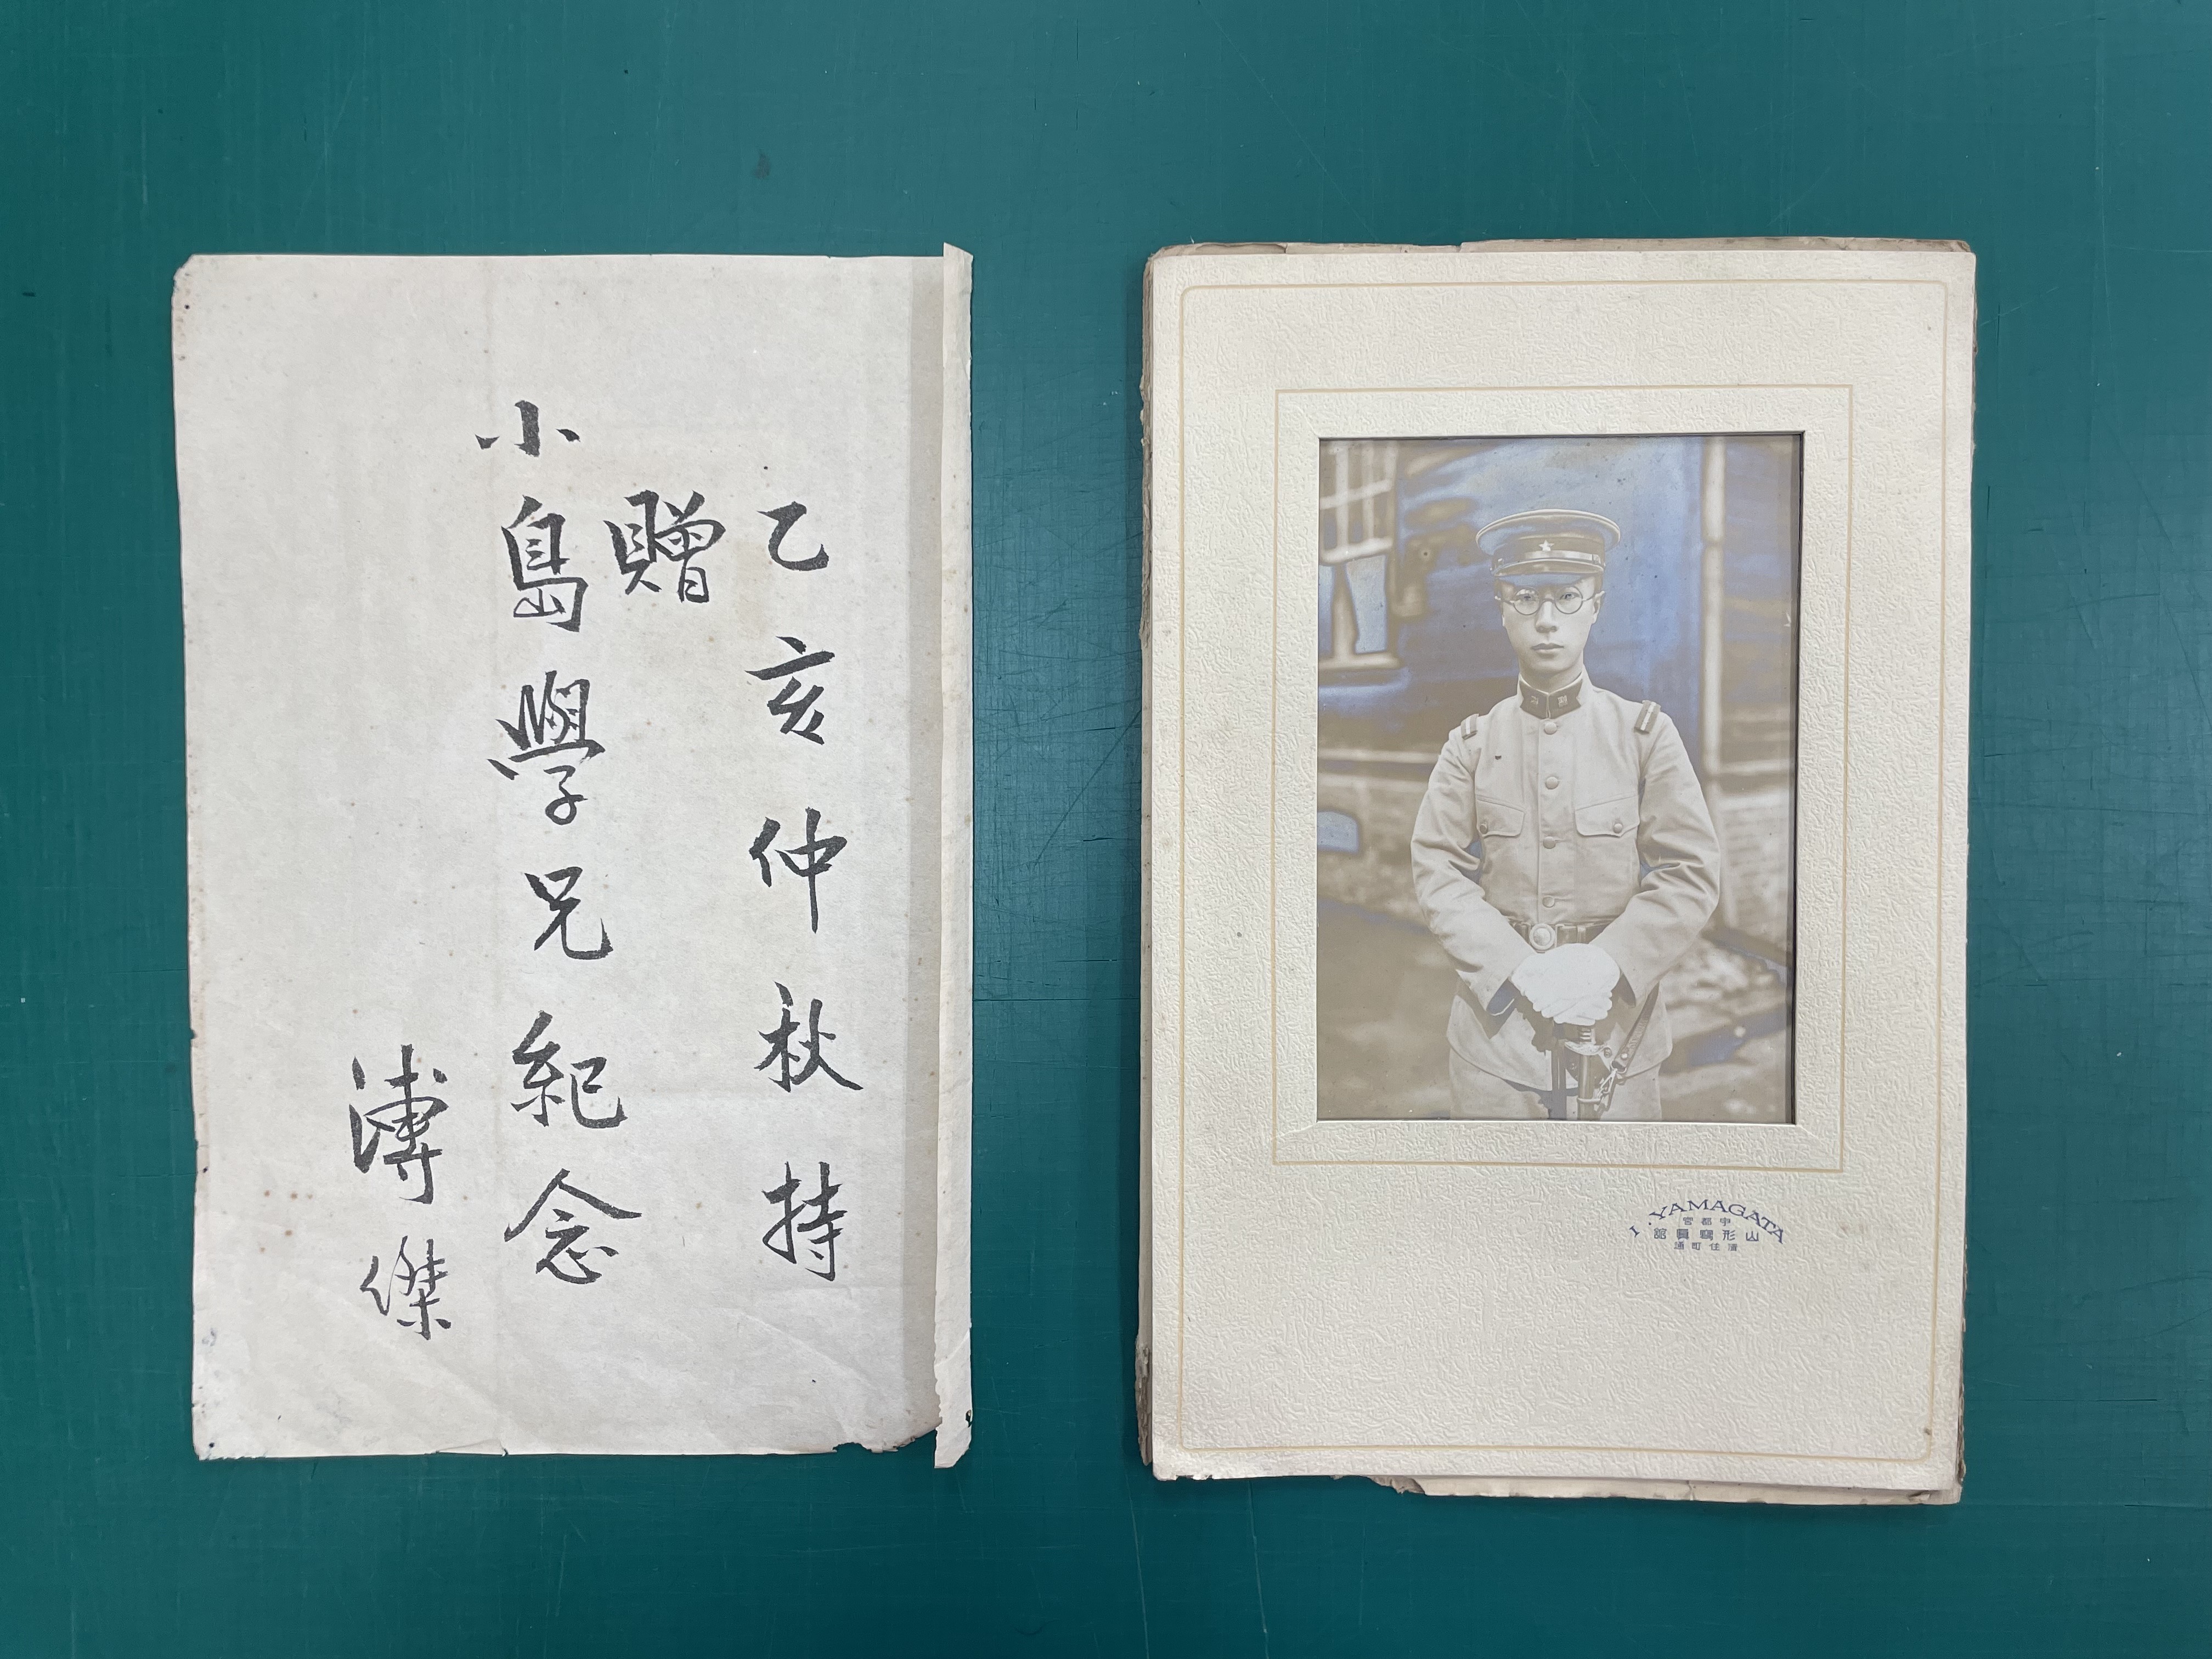 乙亥仲秋持
贈
小島學兄紀念
溥傑
I. YAMAGATA
宇都宮
山形寫眞館
清住町通